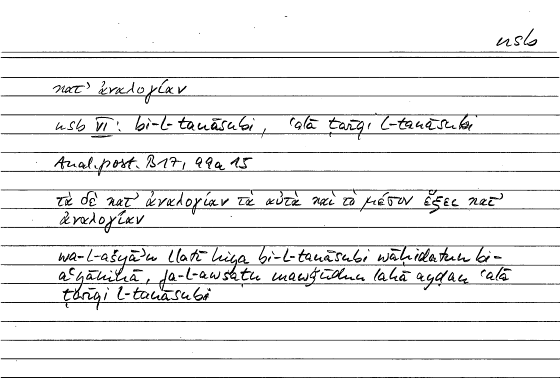 nsb
κατ' ἀναλογίαν
nsb VI: bi-l-tanāsubi, ʿalā ṭarīqi l-tanāsubi
Anal. post. B17, 99a15
τὰ δὲ κατ' ἀναλογίαν τὰ αὐτὰ καὶ τὸ μέσον ἕξει κατ'
ἀναλογίαν
wa-l-ašyāʾu llatī hiya bi-l-tanāsubi wāḥidatun bi-
aʿyānihā, fa-l-awsaṭu mawǧūdun lahā ayḍan ʿalā
ṭarīqi l-tanāsubi